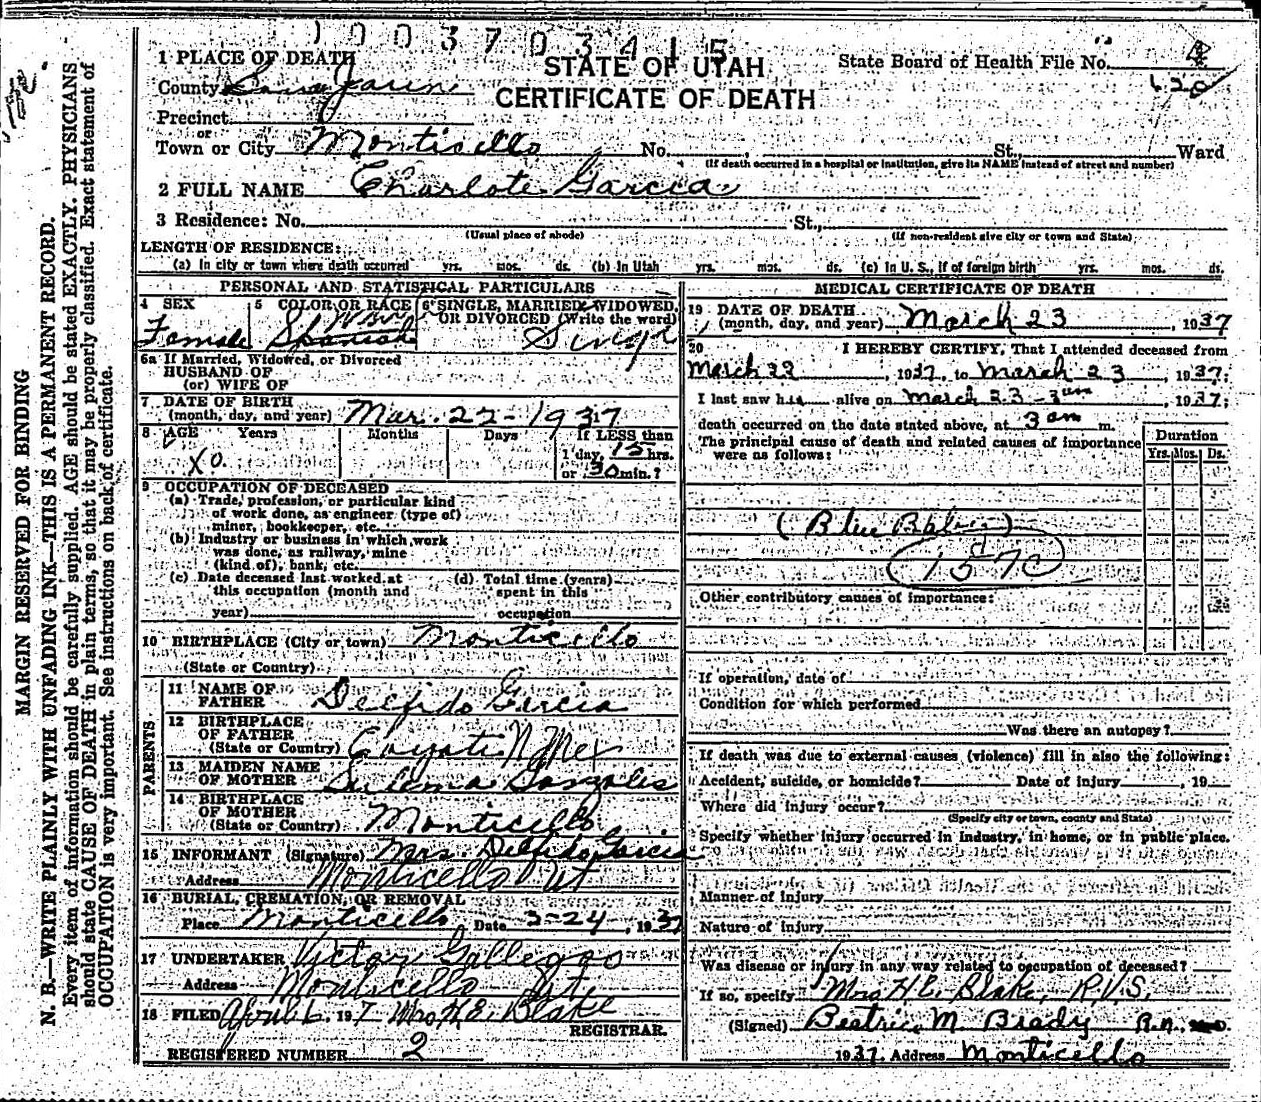 1003703415
1 PLACE OF DEATH
STATE OF UTAH
State Board of Health File No. 4
County San Juan
CERTIFICATE OF DEATH
620
Precinct
or
Town or City Monticello No. , St., Ward
(If death occurred in a hospital or institution, give its NAME instead of street and number)
2 FULL NAME Charlote Garcia
3 Residence: No. St.,
(Usual place of abode) (If non-resident give city or town and State)
LENGTH OF RESIDENCE:
(a) In city or town where death occurred yrs. mos. ds. (b) In Utah yrs. mos. ds. (c) In U. S., if of foreign birth yrs. mos. ds.
PERSONAL AND STATISTICAL PARTICULARS
4 SEX 5 COLOR OR RACE 6 SINGLE, MARRIED, WIDOWED,
OR DIVORCED (Write the word)
Female Spanish Singl
6a If Married, Widowed, or Divorced
HUSBAND OF
(or) WIFE OF
7 DATE OF BIRTH
(month, day, and year) Mar. 22-1937
8 AGE Years Months Days If LESS than
1 day, 15 hrs.
or 30 min.?
9 OCCUPATION OF DECEASED
(a) Trade, profession, or particular kind
of work done, as engineer (type of)
miner, bookkeeper, etc.
(b) Industry or business in which work
was done, as railway, mine
(kind of), bank, etc.
(c) Date deceased last worked at (d) Total time (years)
this occupation (month and spent in this
year) occupation
10 BIRTHPLACE (City or town) Monticello
(State or Country)
PARENTS
11 NAME OF
FATHER Delfido Garcia
12 BIRTHPLACE
OF FATHER
(State or Country) N Mex
13 MAIDEN NAME
OF MOTHER Gonzales
14 BIRTHPLACE
OF MOTHER
(State or Country) Monticello
15 INFORMANT (Signature) Mrs. Delfido Garcia
Address Monticello Ut
16 BURIAL, CREMATION, OR REMOVAL
Place Monticello Date 3-24, 1937
17 UNDERTAKER Victor Gallegos
Address Monticello Ut
18 FILED April 6, 1937 Mrs H.E. Blake
REGISTRAR.
REGISTERED NUMBER 2
MEDICAL CERTIFICATE OF DEATH
19 DATE OF DEATH
(month, day, and year) March 23, 1937
20 I HEREBY CERTIFY, That I attended deceased from
March 22, 1937, to March 23, 1937;
I last saw h alive on March 23-3am, 1937;
death occurred on the date stated above, at 3 am m.
The principal cause of death and related causes of importance
were as follows:
Duration
Yrs. Mos. Ds.
(Blue Baby)
157C
Other contributory causes of importance:
If operation, date of
Condition for which performed
Was there an autopsy?
If death was due to external causes (violence) fill in also the following:
Accident, suicide, or homicide? Date of injury , 19
Where did injury occur?
(Specify city or town, county and State)
Specify whether injury occurred in industry, in home, or in public place.
Manner of injury
Nature of injury
Was disease or injury in any way related to occupation of deceased?
If so, specify Mrs H.E. Blake, R.V.S.
(Signed) Beatrice M. Brady R.n.
1937. Address Monticello
MARGIN RESERVED FOR BINDING
N. B.—WRITE PLAINLY WITH UNFADING INK—THIS IS A PERMANENT RECORD.
Every item of information should be carefully supplied. AGE should be stated EXACTLY. PHYSICIANS
should state CAUSE OF DEATH in plain terms, so that it may be properly classified. Exact statement of
OCCUPATION is very important. See instructions on back of certificate.